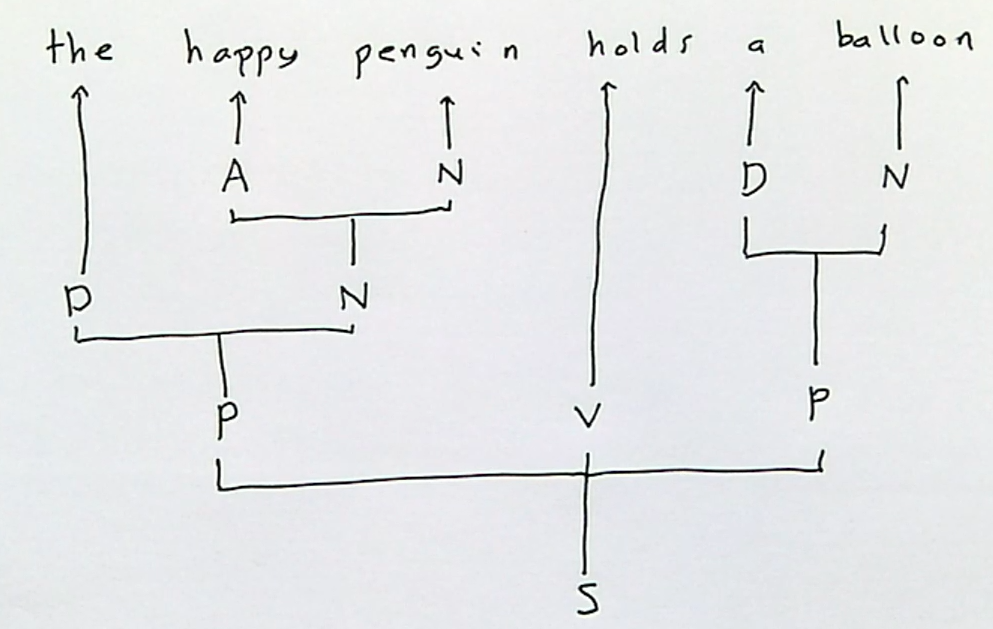 the happy penguin holds a balloon
A N D N
D N
P V P
S